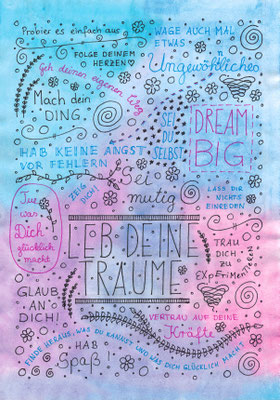 Probier es einfach aus
WAGE AUCH MAL
ETWAS
Ungewöhnliches
FOLGE DEINEM
HERZEN
Geh deinen eigenen Weg
Mach dein
DING
SEI
DU
SELBST
DREAM
BIG
HAB KEINE ANGST
VOR FEHLERN
ZEIG
DICH!
Sei
mutig
LASS DIR
NICHTS
EINREDEN
Tue
was
Dich
glücklich
macht
LEB DEINE
TRÄUME
TRAU
DICH ZU
EXPERIMENTIEREN
GLAUB
AN
DICH!
VERTRAU AUF DEINE
Kräfte
FINDE HERAUS, WAS DU KANNST UND WAS DICH GLÜCKLICH MACHT
HAB
Spaß!